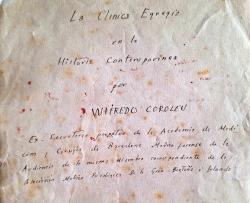 La Clinica Egregia
en la
Historia Contemporanea
por
WIFREDO COROLEU
Ex-Secretario perpetuo de la Academia de Medi-
cina y Cirugia de Barcelona. Medico forense de la
Audiencia de la misma. Miembro correspondiente de la
Asociación Medico Psicologica de la Gran Bretaña e Irlanda